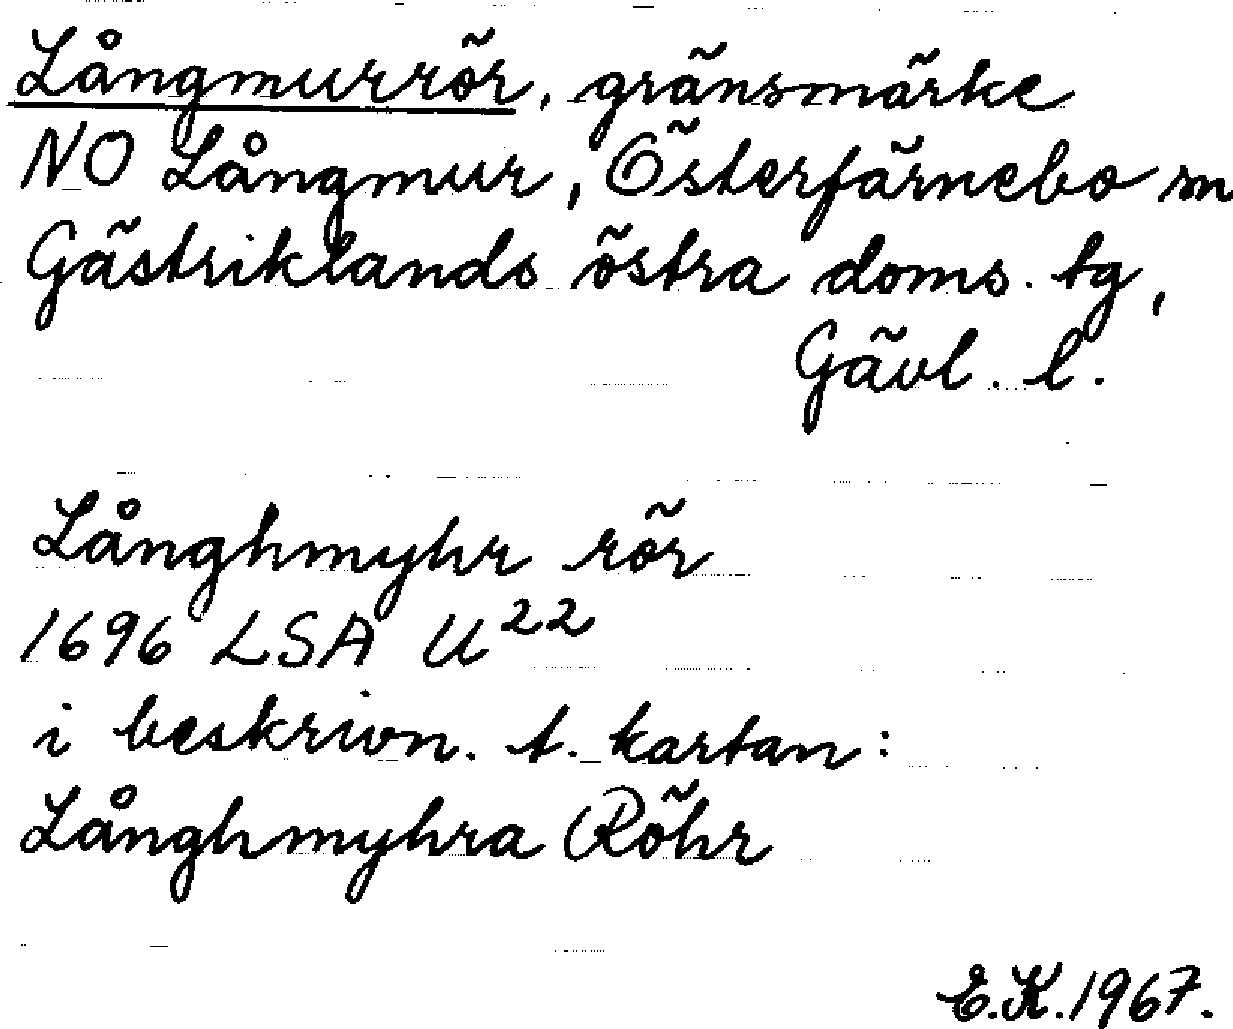 Långmurrör, gränsmärke
NO Långmur, Österfärnebo sn
Gästriklands östra doms. tg,
Gävl. l.
Långhmyhr rör
1696 LSA U22
i beskrivn. t. kartan:
Långhmyhra Röhr
E.K. 1967.